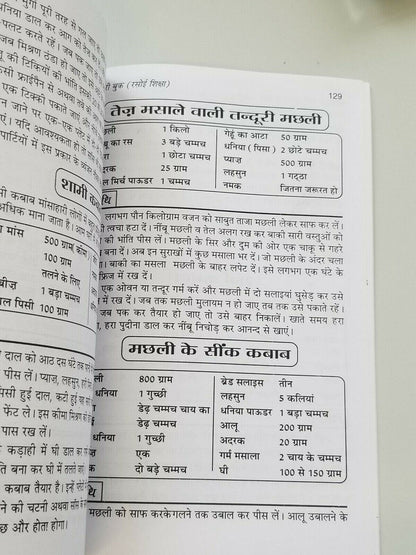 मुर्गी पूरी तरह से गल
धनिया डाल कर आग को तेज
पलट करते रहें। जब पक
जब मिश्रण ठंडा हो जाए
की टिकियों की भांति
फ्राईपैन से अथवा
एक टिक्की पकाते जाएं और
जाने पर एक-एक प्लेट
यदि आवश्यकता हो तो
पार्टियों में इस प्रकार के
शामी
कबाब मांसाहारी लोगों में
अधिक माना जाता है। आम
मांस 500 ग्राम
100 ग्राम
तलने के लिए
1 बड़ा चम्मच
पिसी 100 ग्राम
दाल को आठ दस घंटे तक
लें। प्याज़, लहसुन
पिसी हुई दाल, कटी हुई
फेंट लें। इस कीमा मिश्रण को
पास रख लें।
कड़ाही में घी डाल कर
बना कर घी में तलते जाएं
कबाब तैयार है। इन्हें प्लेट
की चटनी अथवा सॉस के
और होता होगा।
बुक (रसोई शिक्षा) 129
तेज़ मसाले वाली तन्दूरी मछली
1 किलो गेहूं का आटा 50 ग्राम
का रस 3 बड़े चम्मच धनिया (पिसा) 2 छोटे चम्मच
1 छोटा चम्मच प्याज़ 500 ग्राम
25 ग्राम लहसुन 1 गट्ठा
मिर्च पाऊडर 1 चम्मच नमक जितना जरूरत हो
लगभग पौन किलोग्राम वजन को साबुत ताजा मछली लेकर साफ कर लें।
त्वचा हटा दें। नींबू मछली व तेल अलग रख कर बाकी सारी वस्तुओं को
की भांति पीस लें। मछली के सिर और दुम की ओर एक चाकू से गहरे
बना दें। अब इन सुराखों में कुछ मसाला भर दें। जो मछली के अंदर चला
बाकी का मसाला मछली के बाहर लपेट दें। इसे लगभग एक घंटे के
फ्रिज में रख दें।
एक ओवन या तन्दूर गर्म करें और मछली में दो सलाइयां घुसेड़ कर उसे
में रख दें। जब तक मछली मुलायम न हो जाए तब तक उसे पकाते रहें।
जब पक कर तैयार हो जाए तो उसे बाहर निकालें। खाते समय हरा
हरा पुदीना डाल कर नींबू निचोड़ कर आनन्द से खाएं।
मछली के सींक कबाब
800 ग्राम ब्रेड सलाइस तीन
धनिया 1 गुच्छी लहसुन 5 कलियां
डेढ़ चम्मच चाय का धनिया पाऊडर 1 बड़ा चम्मच
डेढ़ चम्मच आलू 200 ग्राम
धनिया 1 गुच्छी अदरक 20 ग्राम
एक गर्म मसाला 2 चाय के चम्मच
दो बड़े चम्मच घी 100 से 150 ग्राम
मछली को साफ करकेगलने तक उबाल कर पीस लें। आलू उबालने के